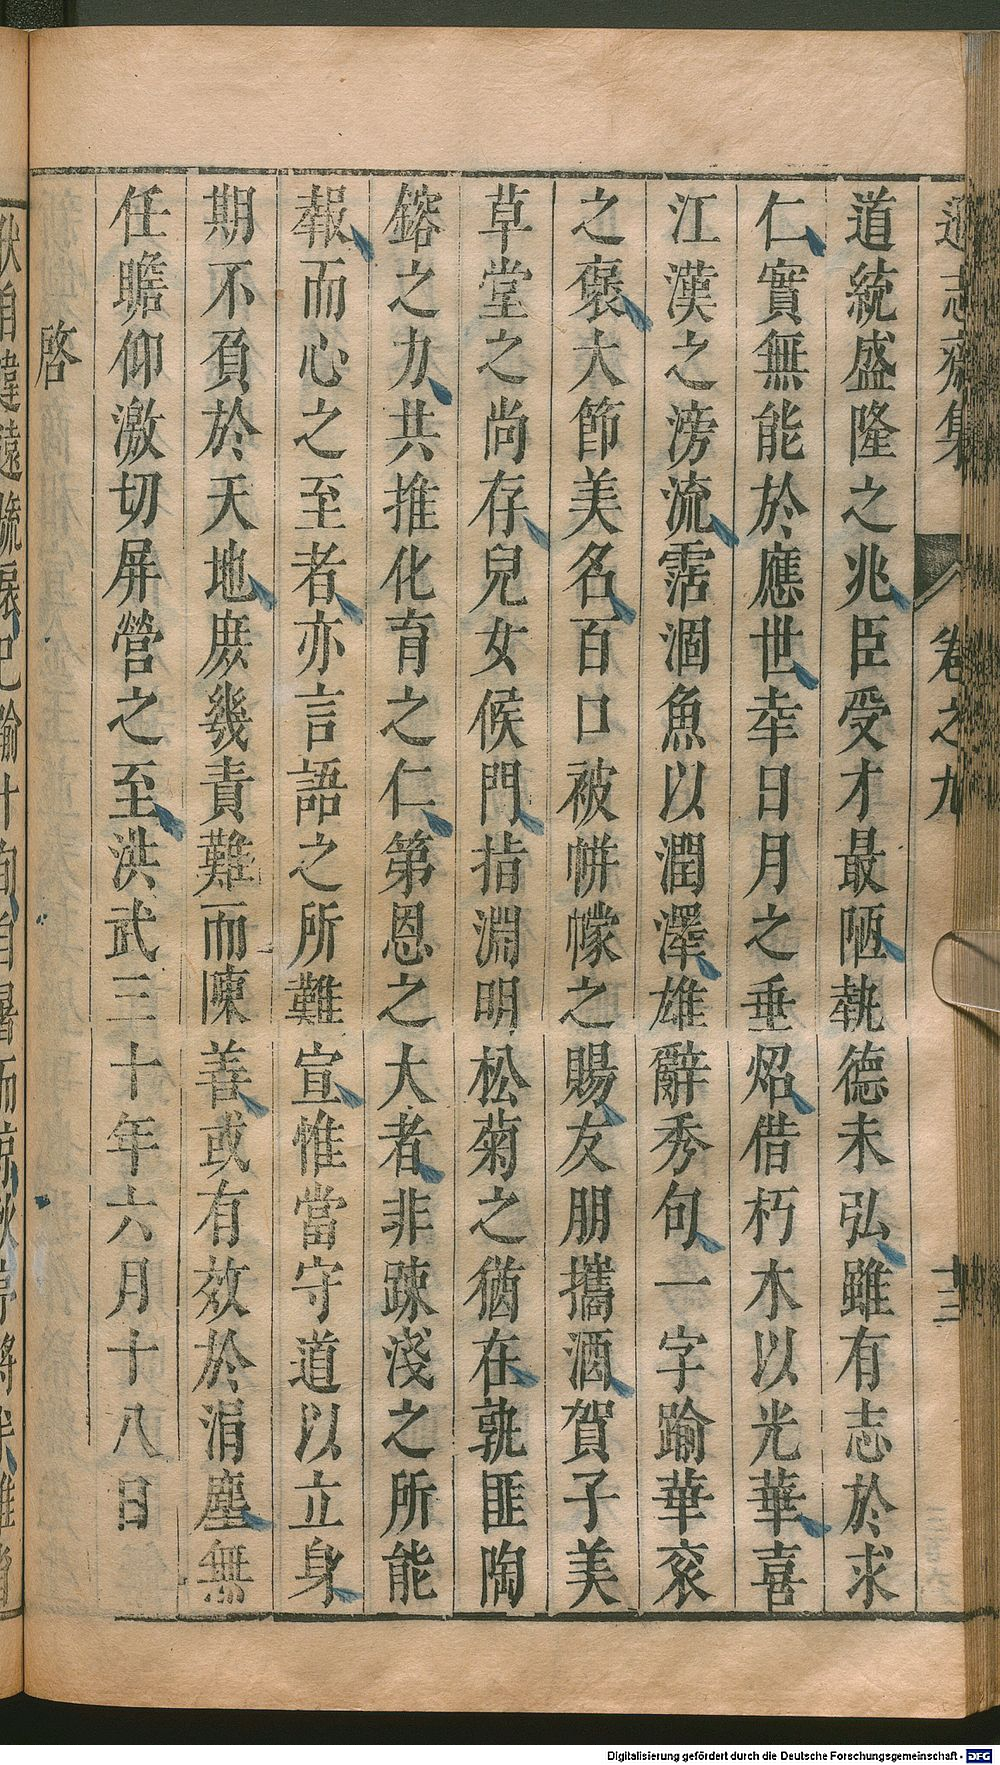 志齋集 卷之九 十三
道統盛隆之兆臣受才最陋執德未弘雖有志於求
仁實無能於應世幸日月之垂炤借朽木以光華喜
江漢之滂流霑涸魚以潤澤雄辭秀句一字踰華衮
之褒大節美名百口被帡幪之賜友朋攜酒賀子美
草堂之尚存兒女候門指淵明松菊之猶在孰匪陶
鎔之力共推化育之仁第恩之大者非踈淺之所能
報而心之至者亦言語之所難宣惟當守道以立身
期不負於天地庶幾責難而陳善或有效於涓塵無
任瞻仰激切屏營之至洪武三十年六月十八日
啓
自違遠
Digitalisierung gefördert durch die Deutsche Forschungsgemeinschaft - DFG